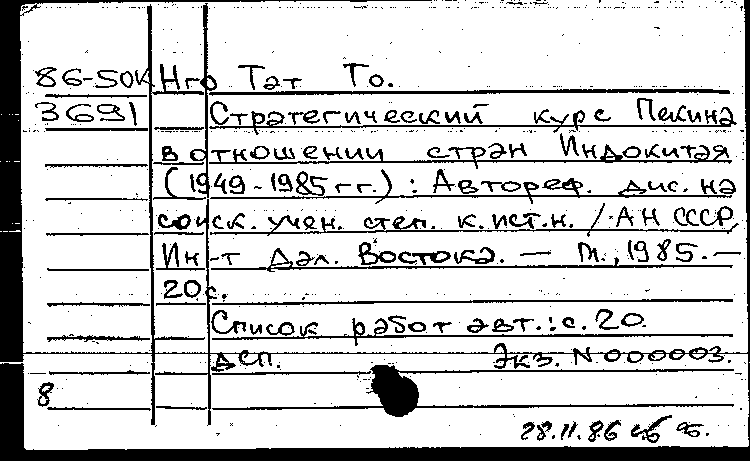 86-50К Нго Тат То.
3691 Стратегический курс Пекина
в отношении стран Индокитая
(1949-1985 гг.): Автореф. дис. на
соиск. учен. степ. к. ист. н. / АН СССР,
Ин-т Дал. Востока. — М., 1985. —
20 с.
Список работ авт.: с. 20.
ДСП. Экз. N 000003.
8
28.11.86